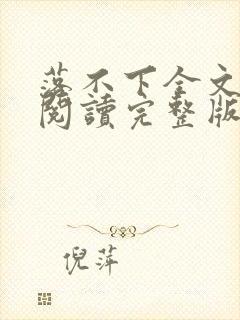 落不下全文
閱讀完整版
倪萍